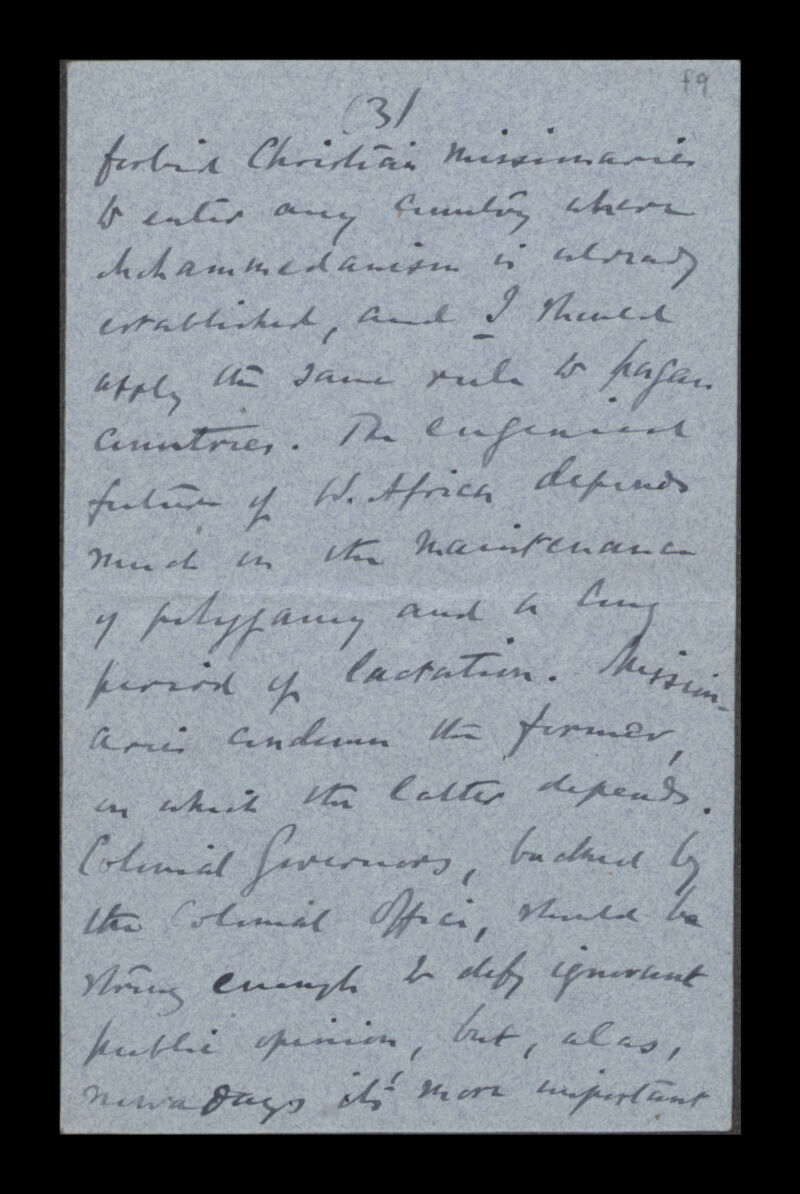 89
(3)
forbid Christian Missionaries
to enter any country where
Mohammedanism is already
established, and I should
apply the same rule to pagan
countries. The eugenical
future of W. Africa depends
much on the maintenance
of polygamy and a long
period of lactation. Mission-
aries condemn the former,
on which the latter depends.
Colonial Governors, backed by
the Colonial Office, should be
strong enough to defy ignorant
public opinion, but, alas,
nowadays it's more important